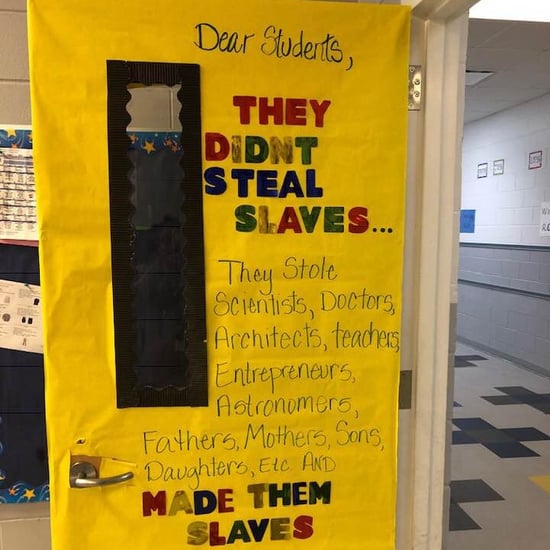 Dear Students,
THEY
DIDNT
STEAL
SLAVES...
They Stole
Scientists, Doctors,
Architects, teachers,
Entrepreneurs,
Astronomers,
Fathers, Mothers, Sons,
Daughters, Etc. AND
MADE THEM
SLAVES